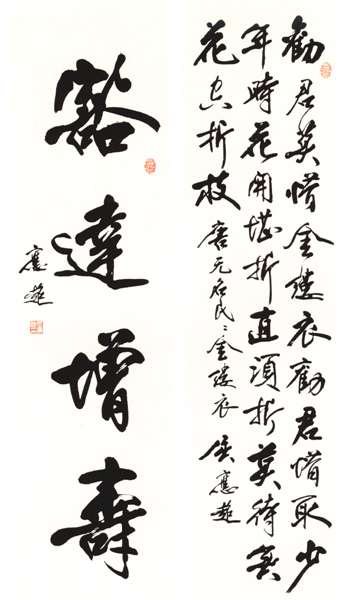 勸君莫惜金縷衣勸君惜取少
年時花開堪折直須折莫待無
花空折枝 唐无名氏金縷衣 應超
豁達增壽
應超